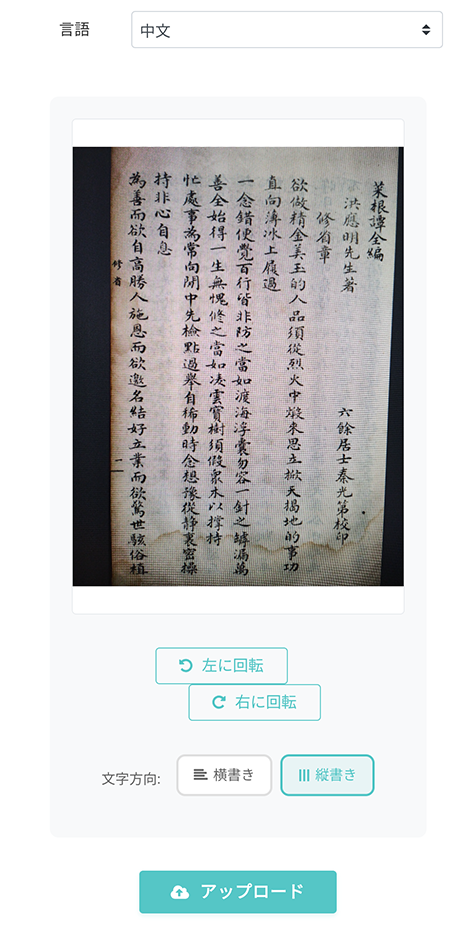 言語
中文
菜根譚全編
洪應明先生著
六餘居士秦光第校印
修省章
欲做精金美玉的人品須從烈火中煅來思立掀天揭地的事功
直向薄冰上履過
一念錯便覺百行皆非防之當如渡海浮囊勿容一針之罅漏萬
善全始得一生無愧修之當如凌雲寶樹須假衆木以撐持
忙處事為常向閒中先檢點過舉自稀動時念想豫從静裏密操
持非心自息
為善而欲自高勝人施恩而欲邀名結好立業而欲驚世駭俗植
修省
一
左に回転
右に回転
文字方向:
横書き
縦書き
アップロード